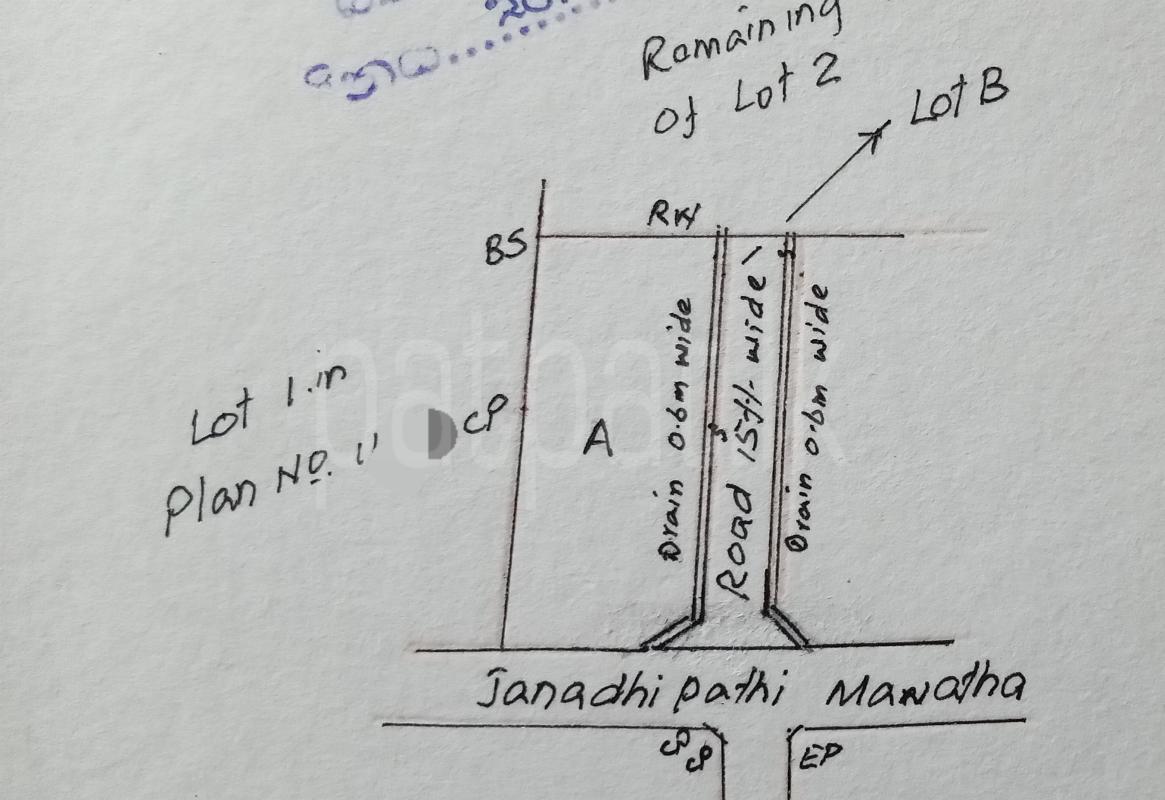 Remaining
of Lot 2
Lot B
RW
BS
Lot 1 in
Plan No. 11
CP
A
Drain 0.6m wide
Road 15ft wide
Drain 0.6m wide
Janadhipathi Mawatha
EP